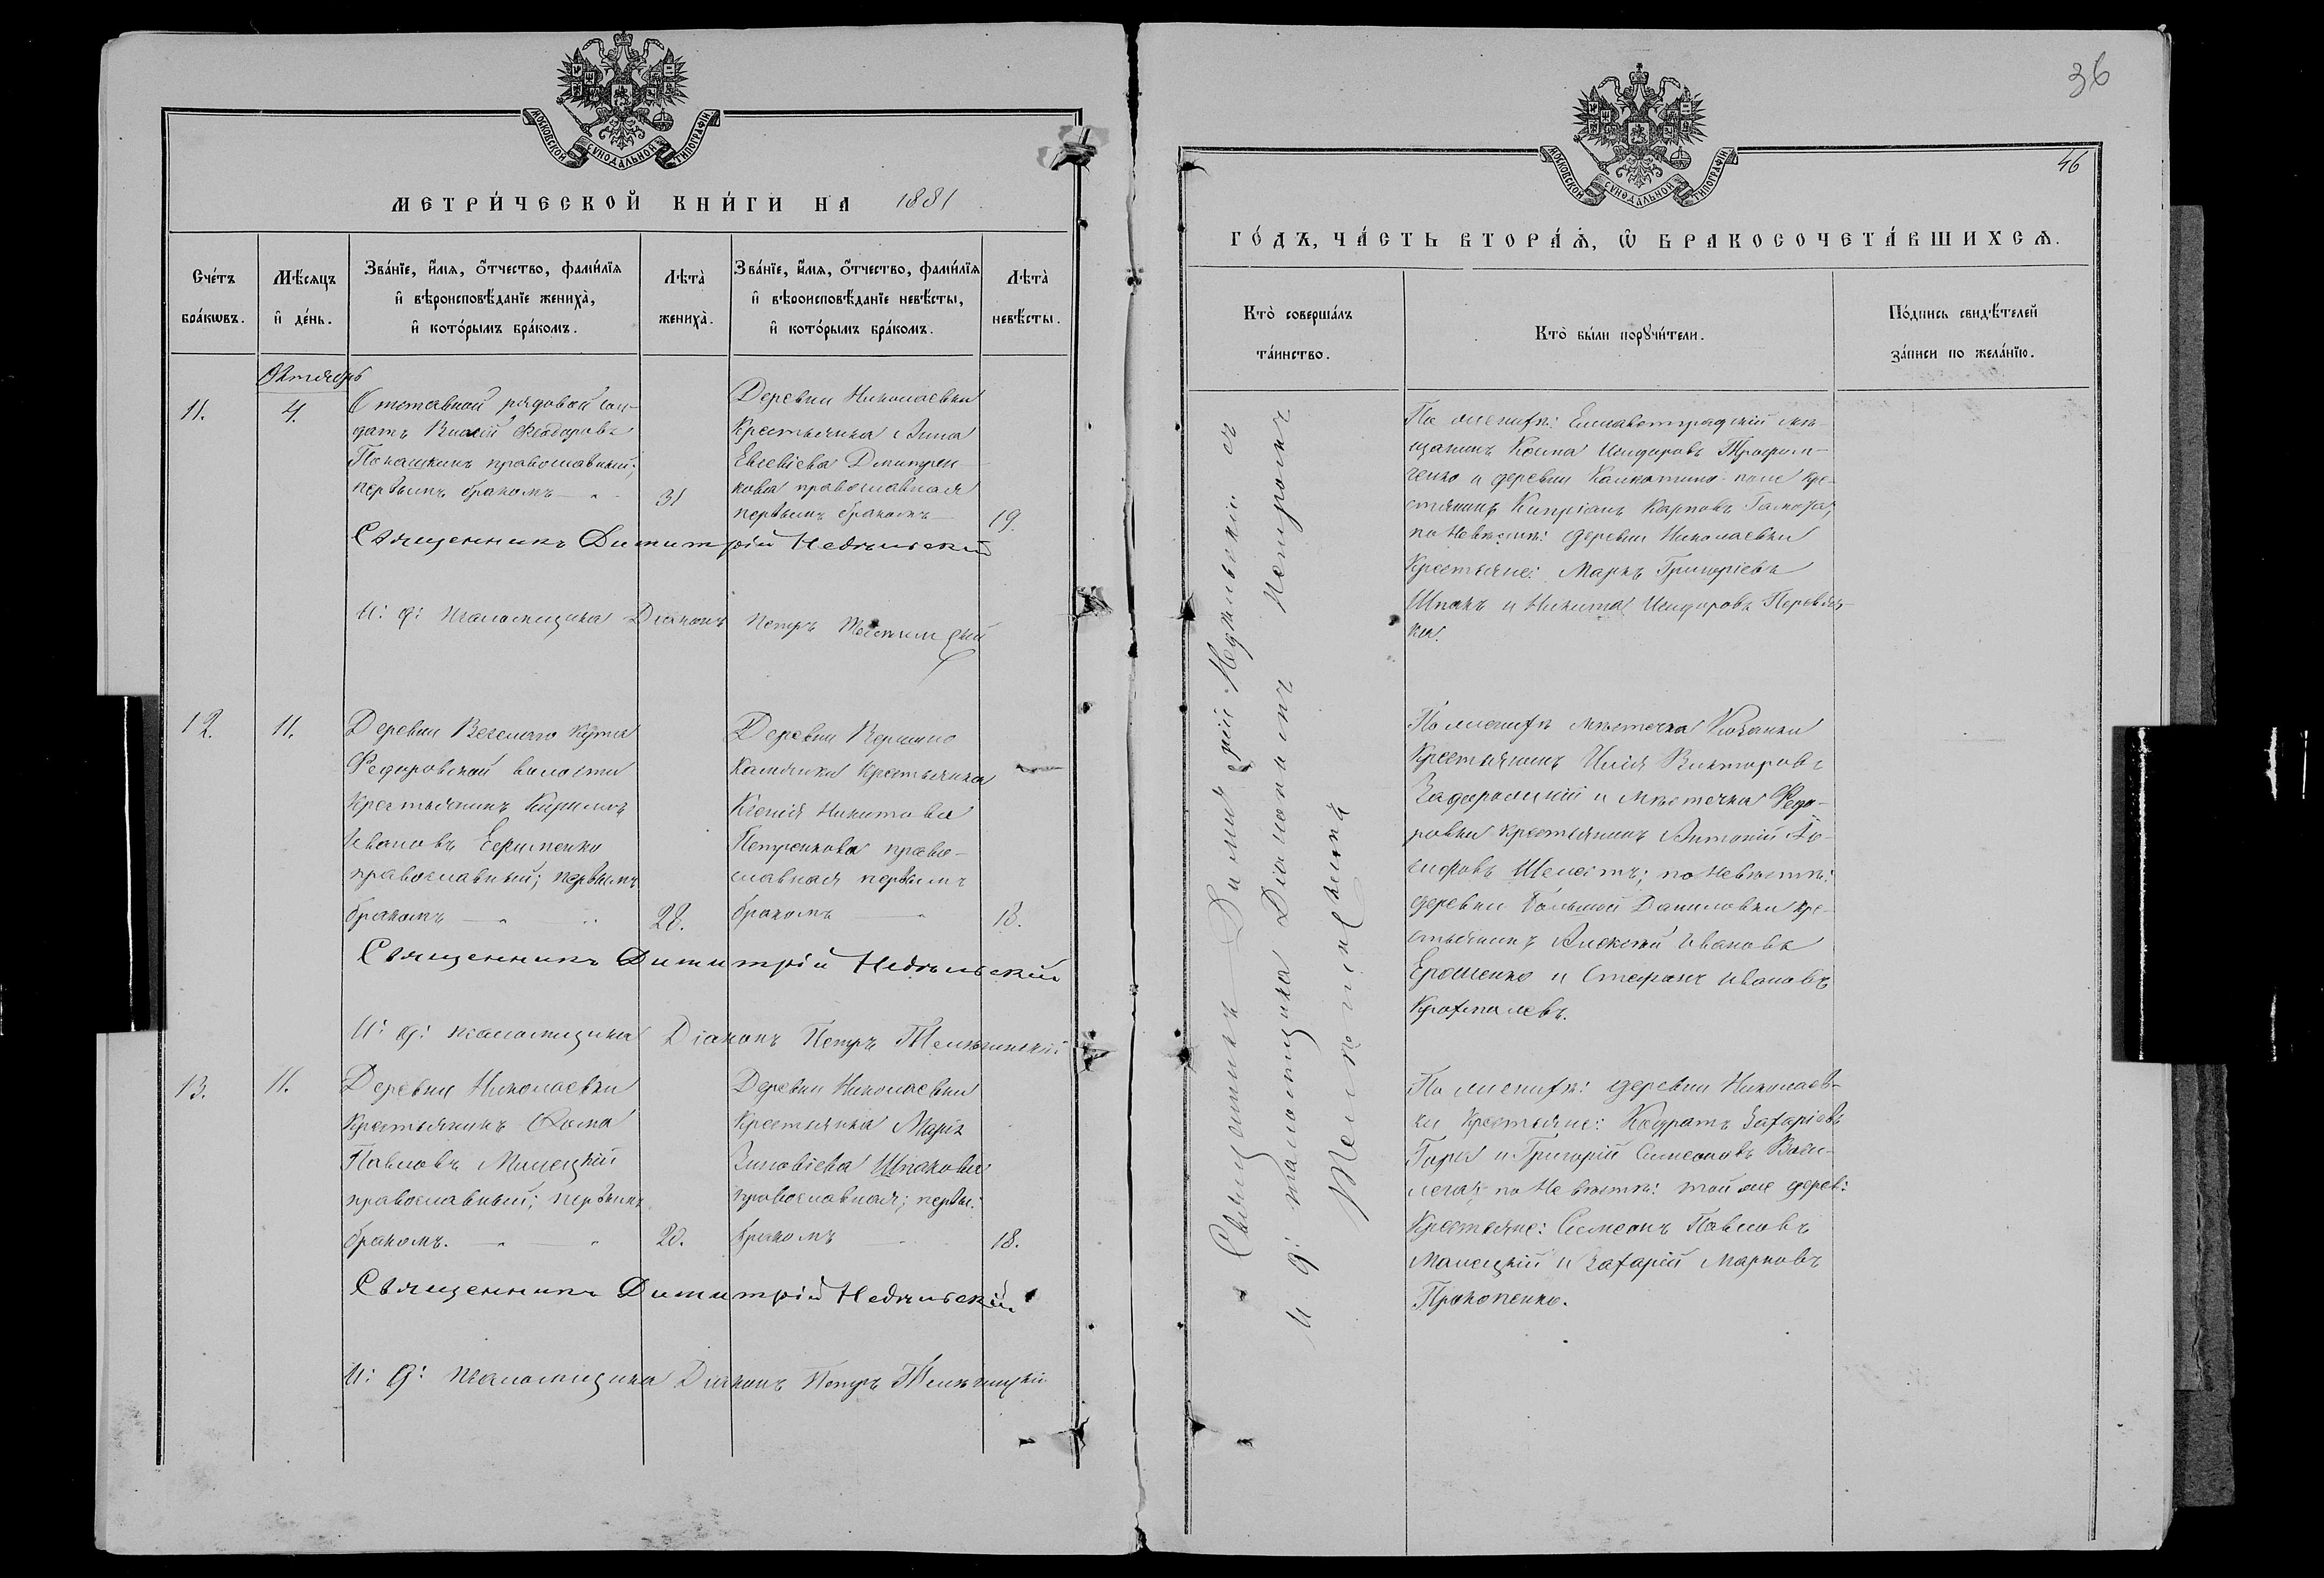 36
46
МОСКОВСКОЙ СѴНОДАЛЬНОЙ ТИПОГРАФІИ
МЕТРИ́ЧЕСКОЙ КНИ́ГИ НА 1881
Сче́тъ бра́кѡвъ.
Мѣ́сяцъ и҆ де́нь.
Зва́нїе, и҆́мѧ, ѻ҆́тчество, фами́лїѧ
и҆ вѣроисповѣ́данїе жениха̀,
и҆ кото́рымъ бра́комъ.
Лѣта̀ жениха̀.
Зва́нїе, и҆́мѧ, ѻ҆́тчество, фами́лїѧ
и҆ вѣроисповѣ́данїе невѣ́сты,
и҆ кото́рымъ бра́комъ.
Лѣта̀ невѣ́сты.
Октябрь
11.
4.
Отставной рядовой сол-
датъ Феодоровъ
православный;
первымъ бракомъ
31
Деревни Николаевки
Крестьянка Анна
Евсевіева Дмитрен-
кова православная
первымъ бракомъ
19.
Священникъ Димитрій Недѣльскій
И: д: псаломщика Діаконъ Петръ
12.
11.
Деревни Веселаго Кута
Федоровской волости
Крестьянинъ Кириллъ
Ивановъ
православный; первымъ
бракомъ
28.
Деревни Вершино
Каменки Крестьянка
Ксенія Никитова
Петренкова право-
славная первымъ
бракомъ
18.
Священникъ Димитрій Недѣльскій
И: д: псаломщика Діаконъ Петръ
13.
11.
Деревни Николаевки
Крестьянинъ Фома
Павловъ
православный; первымъ
бракомъ.
20.
Деревни Николаевки
Крестьянка Марія
Зиновіева Шпакова
православная; первы:
бракомъ
18.
Священникъ Димитрій Недѣльскій
И: д: псаломщика Діаконъ Петръ
МОСКОВСКОЙ СѴНОДАЛЬНОЙ ТИПОГРАФІИ
ГО́ДЪ, ЧА́СТЬ ВТОРА́Ѧ, Ѽ БРАКОСОЧЕТА́ВШИХСѦ.
Кто̀ соверша́лъ
та́инство.
Кто̀ бы́ли порꙋчи́тели.
По́дпись свидѣ́телей
за́писи по жела́нїю.
Священникъ Димитрій Недѣльскій съ
и д: псаломщика Діакономъ Петромъ
По женихѣ: Елисаветградскій мѣ-
щанинъ Косма Исидоровъ Трофим-
ченко и деревни кре-
стьянинъ Кипріанъ Карповъ
по Невѣстѣ: деревни Николаевки
Крестьяне: Маркъ Григоріевъ
Шпакъ и Никита Исидоровъ
По женихѣ мѣстечка Казанки
Крестьянинъ Илія Викторовъ
и мѣстечка Федо-
ровки крестьянинъ Антоній Іо-
сифовъ Шелестъ; по Невѣстѣ:
деревни Большой Даниловки кре-
стьянинъ Алексѣй Ивановъ
Ерошенко и Стефанъ Ивановъ
По женихѣ: деревни Николаев-
ки крестьяне: Кодратъ Захаріевъ
Гора и Григорій Симеоновъ
по Невѣстѣ: той же дерев:
Крестьяне: Симеонъ Павловъ
и Захарій Марковъ
Прокопенко.